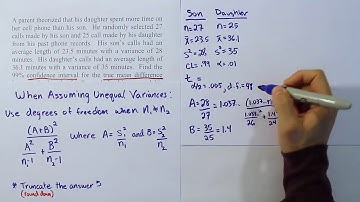 A parent theorized that his daughter spent more time on
her cell phone than his son. He randomly selected 27
calls made by his son and 25 call made by his daughter
from his past phone records. His son's calls had an
average length of 23.5 minutes with a variance of 28
minutes. His daughter's calls had an average length of
36.1 minutes with a variance of 35 minutes. Find the
99% confidence interval for the true mean difference
When Assuming Unequal Variances:
Use degrees of freedom when n₁≠n₂
(A+B)²
A²/n₁-1 + B²/n₂-1
where A=S₁²/n₁ and B=S₂²/n₂
* Truncate the answer
(round down)
Son Daughter
n=27 n=25
x̄=23.5 x̄=36.1
S²=28 S²=35
CL=.99 α=.01
t =
α/2=.005, d.f.=
A=28/27=1.037..
B=35/25=1.4